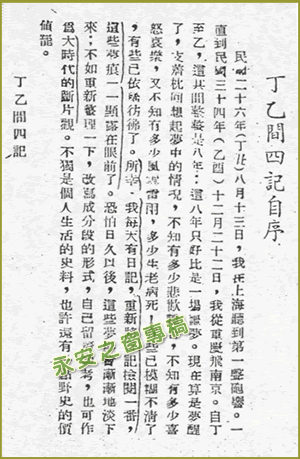 丁乙間四記自序
民國二十六年（丁丑）八月十三日，我在上海聽到第一聲砲響。一
直到民國三十四年（乙酉）十二月二十二日，我從重慶飛南京。自丁
至乙，這其間整整是八年：這八年只好比是一場噩夢。現在算是夢醒
了，支着枕回想起夢中的情況，不知有多少悲歡，不知有多少
怒哀樂，又不知有多少風雲雷雨，多少生老病死！些已模糊不清了
，有些已依稀彷彿了。所幸，我每天有日記，重新日記檢閱一番，
這些夢痕，一一顯露在眼前了。恐怕日久以後，這些夢漸漸地淡下
來；不如重新整理一下，改寫成分段的形式，自己留考，也可作
爲大時代的斷片觀。不獨是個人生活的史料，也許還有點野史的價
値罷。
丁乙間四記
永安之窗專稿